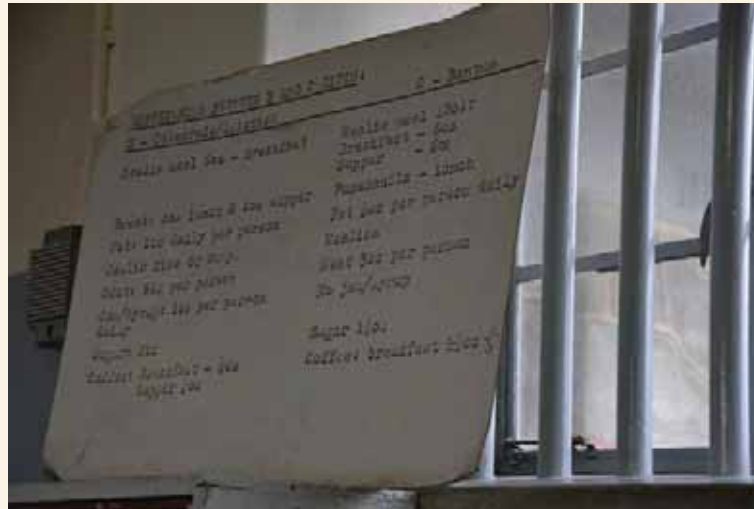 DIFFERENCE BETWEEN B AND C DIETS:
B - Coloureds/Asiatics
C - Bantus
Mealie meal 6oz - Breakfast
Bread 4oz lunch & 4oz supper
Fats 1oz daily per person
Mealie rice or samp.
Meat 6oz per person
Jam/Syrup 1oz per person
daily
Sugar 2oz
Coffee: Breakfast -
Supper
Mealie meal 12oz:
Breakfast - 6oz
Supper - 6oz
Puzamandla - lunch
Fat per person daily
Mealies
Meat 5oz per person
No jam/syrup
Sugar
Coffee: breakfast